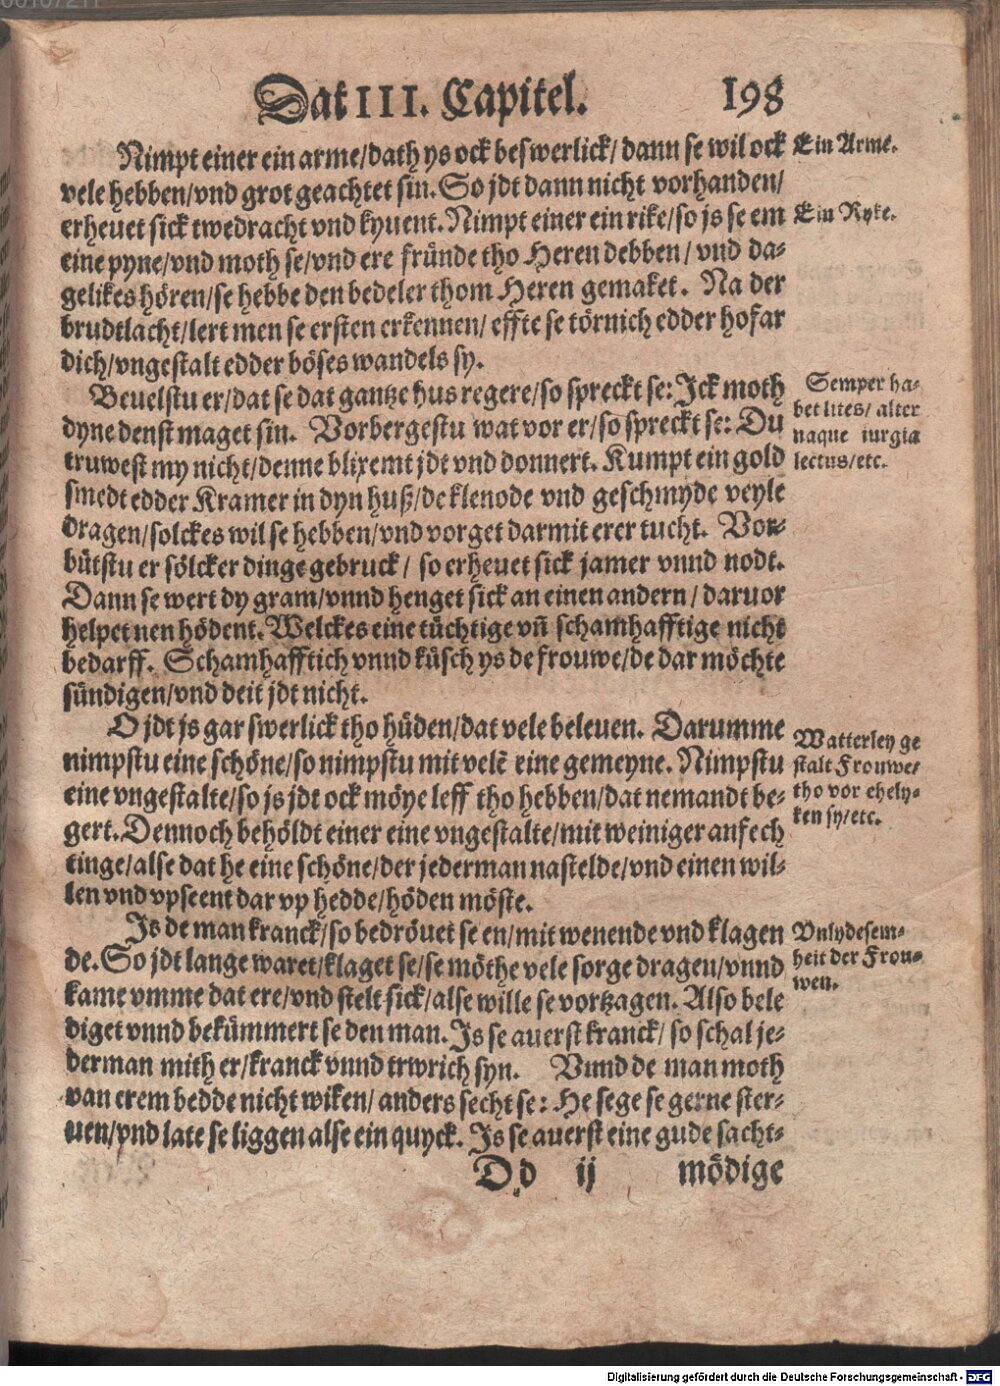 Dat III. Capitel. 198
Nimpt einer ein arme/dath ys ock beswerlick/ dann se wil ock
Ein Arme.
vele hebben/vnd grot geachtet sin. So jdt dann nicht vorhanden/
erheuet sick twedracht vnd kyuent. Nimpt einer ein rike/so js se em
Ein Ryke.
eine pyne/vnd moth se/vnd ere fründe tho Heren debben/ vnd da-
gelikes hören/se hebbe den bedeler thom Heren gemaket. Na der
brudtlacht/lert men se ersten erkennen/ effte se törnich edder hofar
dich/vngestalt edder böses wandels sy.
Beuelstu er/dat se dat gantze hus regere/so spreckt se: Ick moth
dyne denst maget sin. Vorbergestu wat vor er/so spreckt se: Du
truwest my nicht/denne blixemt jdt vnd donnert. Kumpt ein gold
smedt edder Kramer in dyn huß/de klenode vnd geschmyde veyle
dragen/solckes wil se hebben/vnd vorget darmit erer tucht. Vor-
bütstu er sölcker dinge gebruck/ so erheuet sick jamer vnnd nodt.
Dann se wert dy gram/vnnd henget sick an einen andern/ daruor
helpet nen hödent. Welckes eine tüchtige vn̄ schamhafftige nicht
bedarff. Schamhafftich vnnd küsch ys de frouwe/de dar möchte
sündigen/vnd deit jdt nicht.
Semper ha-
bet lites/ alter
naque iurgia
lectus/etc.
O jdt js gar swerlick tho hüden/dat vele beleuen. Darumme
nimpstu eine schöne/so nimpstu mit velē eine gemeyne. Nimpstu
eine vngestalte/so js jdt ock möye leff tho hebben/dat nemandt be-
gert. Dennoch behöldt einer eine vngestalte/mit weiniger anfech
tinge/alse dat he eine schöne/der jederman nastelde/vnd einen wil-
len vnd vpseent dar vp hedde/höden möste.
Watterley ge
stalt Frouwe-
tho vor ehely-
ken sy/etc.
Is de man kranck/so bedröuet se en/mit wenende vnd klagen
de. So jdt lange waret/klaget se/se möthe vele sorge dragen/vnnd
kame vmme dat ere/vnd stelt sick/alse wille se vortzagen. Also bele
diget vnnd bekümmert se den man. Is se auerst kranck/ so schal je-
derman mith er/kranck vnnd trwrich syn. Vnnd de man moth
van erem bedde nicht wiken/ anders secht se: He sege se gerne ster-
uen/vnd late se liggen alse ein quyck. Is se auerst eine gude sacht-
Vnlydesem-
heit der Frou-
wen.
D d ij mödige
Digitalisierung gefördert durch die Deutsche Forschungsgemeinschaft - DFG